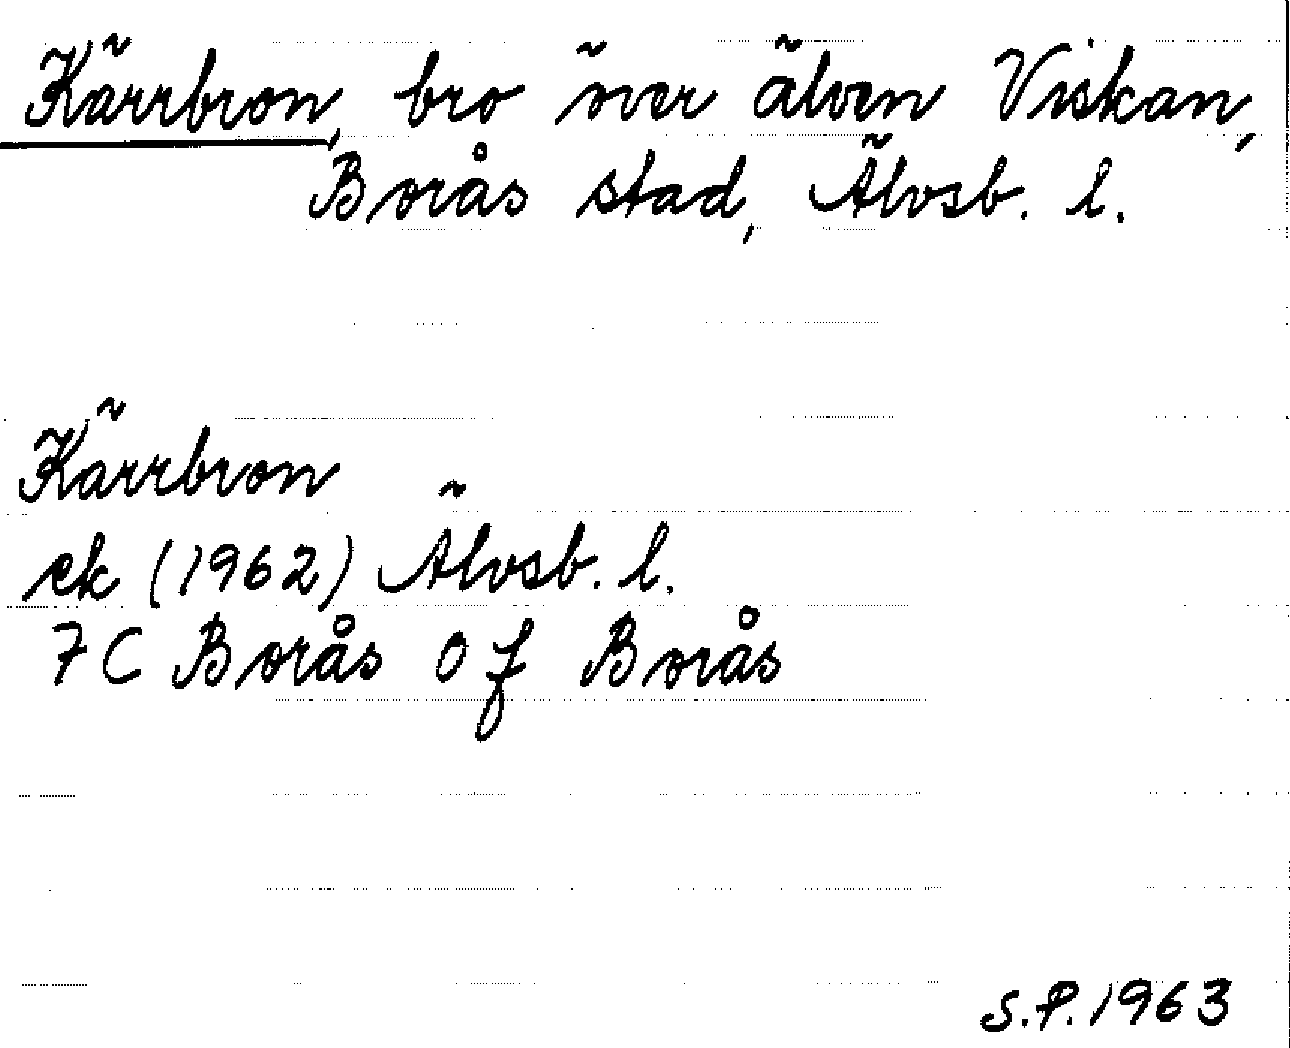 Kärrbron, bro över älven Viskan,
Borås stad, Älvsb. l.
Kärrbron
ek (1962) Älvsb. l.
7C Borås 0 f Borås
S.P. 1963